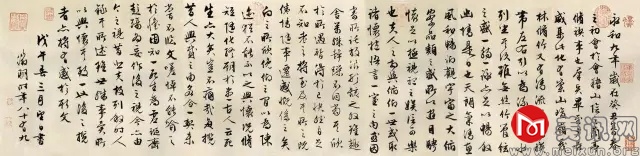 永和九年歲在癸丑暮春
之初會于會稽山陰之蘭亭
脩禊事也羣賢畢至少長
咸集此地有崇山峻嶺茂
林脩竹又有清流激湍暎
帶左右引以為流觴曲水
列坐其次雖無絲竹管絃
之盛一觴一詠亦足以暢敘
幽情是日也天朗氣清惠
風和暢仰觀宇宙之大俯
察品類之盛所以遊目騁
懷足以極視聽之娛信可樂
也夫人之相與俯仰一世或取
諸懷抱悟言一室之內或因
寄所託放浪形骸之外雖趣
舍萬殊靜躁不同當其欣
於所遇暫得於己快然自足不
知老之將至及其所之既惓
情隨事遷感慨係之矣
向之所欣俛仰之間以為陳
迹猶不能不以之興懷況脩
短隨化終期於盡古人云死
生亦大矣豈不痛哉每攬
昔人興感之由若合一契未
嘗不臨文嗟悼不能喻之
於懷固知一死生為虛誕齊
彭殤為妄作後之視今亦由
今之視昔悲夫故列敘時人
錄其所述雖世殊事異所
以興懷其致一也後之攬
者亦將有感於斯文
戊午春三月望日書
徵明時年八十有九
www.meixun.org